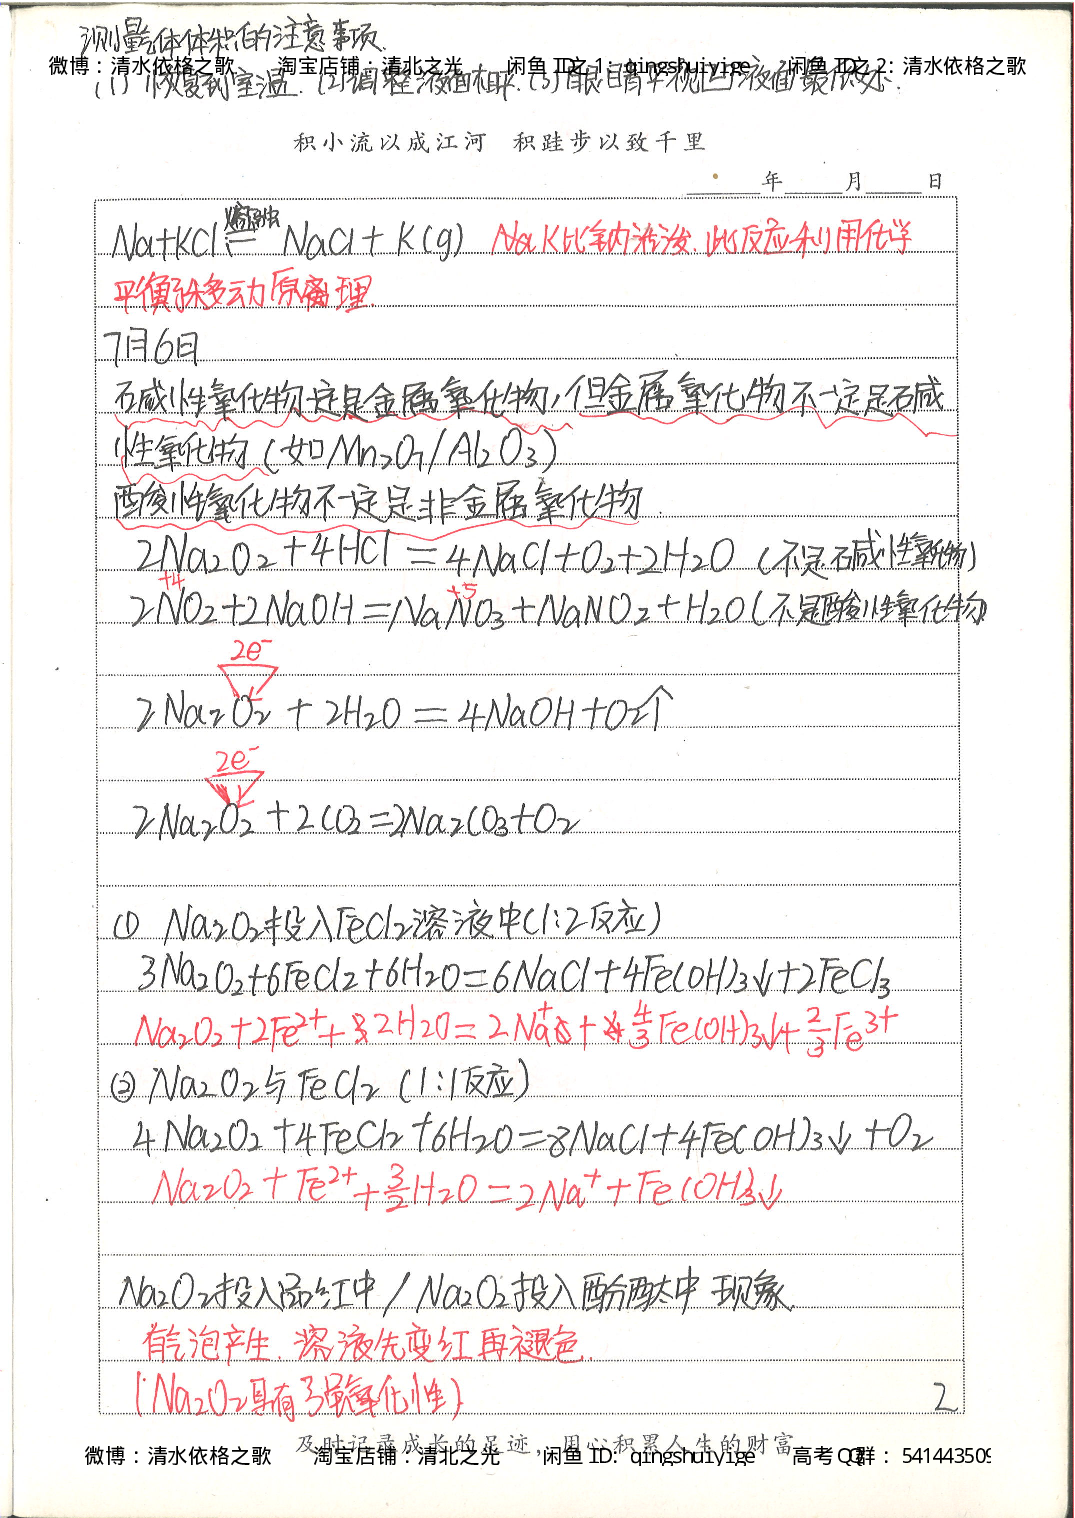 测量气体体积的注意事项.
微博：清水依格之歌 淘宝店铺：清北之光 闲鱼 ID之 1: qingshuiyige 闲鱼 ID之 2: 清水依格之歌
(1) 恢复到室温. (2)调整液面相平. (3)眼睛平视凹液面最低处.
积小流以成江河 积跬步以致千里
年 月 日
Na+KCl 熔融 NaCl + K(g) Na K比钠活泼. 此反应利用化学
平衡移动原理.
7月6日
碱性氧化物一定是金属氧化物，但金属氧化物不一定是碱
性氧化物 (如Mn₂O₇/Al₂O₃)
酸性氧化物不一定是非金属氧化物.
2Na₂O₂ + 4HCl = 4NaCl + O₂ + 2H₂O (不是碱性氧化物)
+4 +5
2NO₂ + 2NaOH = NaNO₃ + NaNO₂ + H₂O (不是酸性氧化物)
2e⁻
2Na₂O₂ + 2H₂O = 4NaOH + O₂↑
2e⁻
2Na₂O₂ + 2CO₂ = 2Na₂CO₃ + O₂
① Na₂O₂投入FeCl₂溶液中(1:2反应)
3Na₂O₂+6FeCl₂+6H₂O=6NaCl+4Fe(OH)₃↓+2FeCl₃
Na₂O₂+2Fe²⁺+2H₂O=2Na⁺+4/3Fe(OH)₃↓+2/3Fe³⁺
② Na₂O₂与FeCl₂ (1:1反应)
4Na₂O₂+4FeCl₂+6H₂O=8NaCl+4Fe(OH)₃↓+O₂
Na₂O₂+Fe²⁺+3/2H₂O=2Na⁺+Fe(OH)₃↓
Na₂O₂投入品红中/Na₂O₂投入酚酞中 现象.
有气泡产生. 溶液先变红再褪色.
(Na₂O₂具有强氧化性)
2
及时记录成长的足迹，用心积累人生的财富
微博：清水依格之歌 淘宝店铺：清北之光 闲鱼 ID: qingshuiyige 高考 QQ群： 541443509